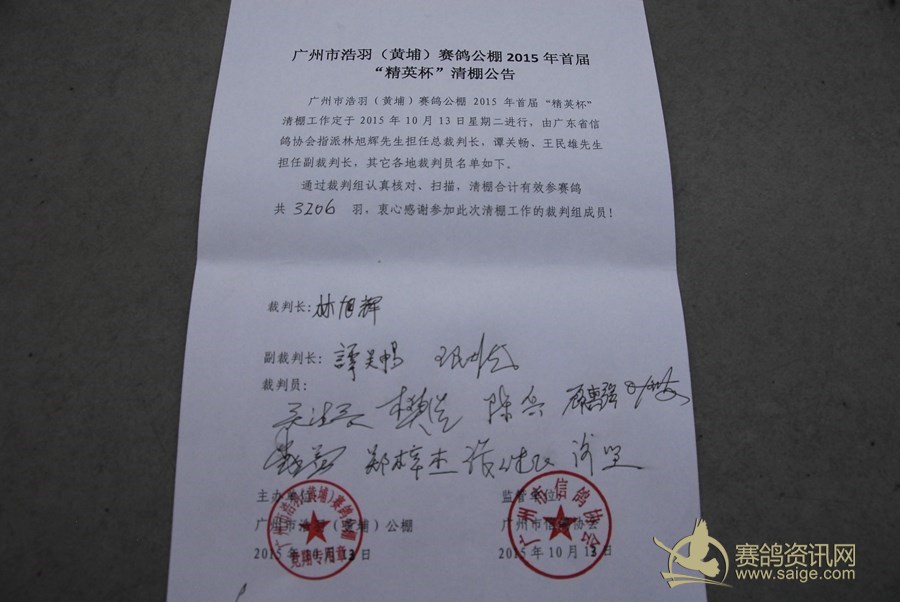 广州市浩羽（黄埔）赛鸽公棚 2015 年首届
“精英杯”清棚公告
广州市浩羽（黄埔）赛鸽公棚 2015 年首届“精英杯”
清棚工作定于 2015 年 10 月 13 日星期二进行，由广东省信
鸽协会指派林旭辉先生担任总裁判长，谭关畅、王民雄先生
担任副裁判长，其它各地裁判员名单如下。
通过裁判组认真核对、扫描，清棚合计有效参赛鸽
共 3206 羽，衷心感谢参加此次清棚工作的裁判组成员！
裁判长：林旭辉
副裁判长：譚关畅
裁判员：
陈兵
郑梓杰
主办单位 监管单位
广州市浩羽（黄埔）公棚 广州市信鸽协会
2015 年 10 月 13 日 2015 年 10 月 13 日
广州市浩羽(黄埔)赛鸽公棚
竞翔专用章
广州市信鸽协会
赛鸽资讯网
www.saige.com